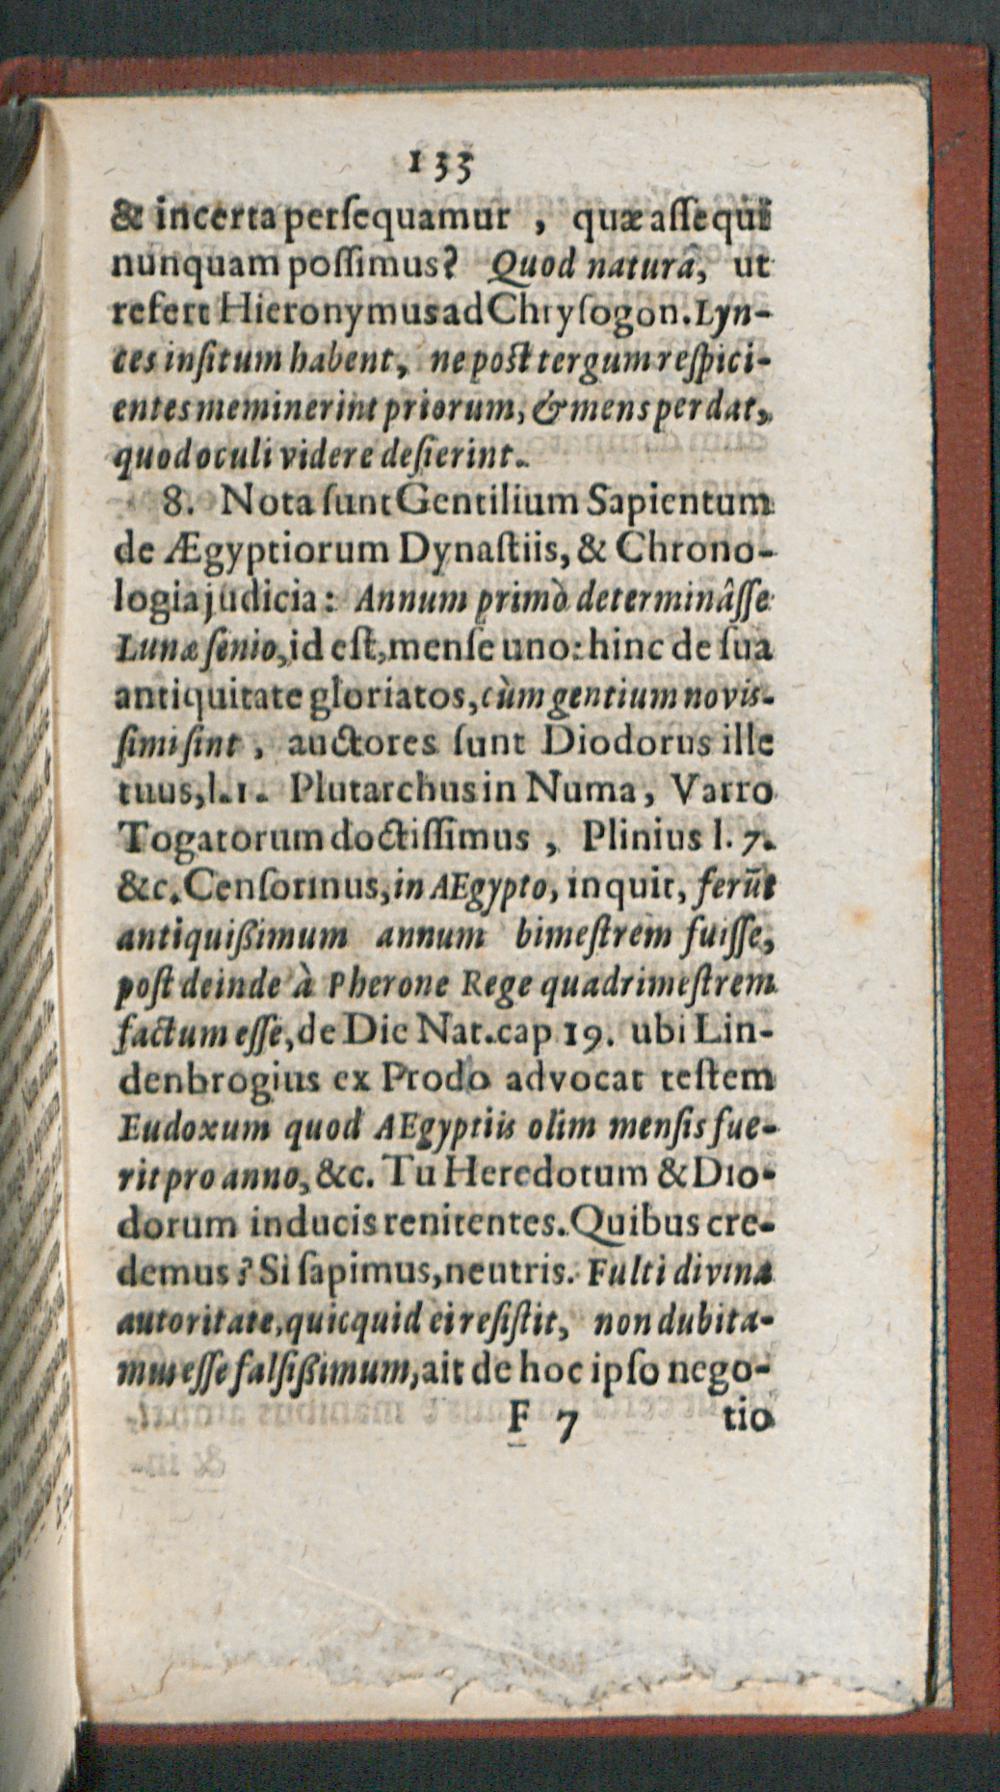 133
& incerta perſequamur , quæ aſſequi
nunquam poſſimus? Quod naturâ, ut
refert Hieronymus ad Chryſogon. Lyn-
ces inſitum habent, ne poſt tergum reſpici-
entes meminerint priorum, & mens perdat,
quod oculi videre deſierint.
8. Nota ſunt Gentilium Sapientum
de Ægyptiorum Dynaſtiis, & Chrono-
logia judicia: Annum primò determinâſſe
Lunæ ſenio, id eſt, menſe uno: hinc de ſua
antiquitate gloriatos, cùm gentium noviſ-
ſimi ſint , auctores ſunt Diodorus ille
tuus, l. 1. Plutarchus in Numa, Varro
Togatorum doctiſſimus , Plinius l. 7.
&c. Cenſorinus, in AEgypto, inquit, ferūt
antiquißimum annum bimeſtrem fuiſſe,
poſt deinde à Pherone Rege quadrimeſtrem
factum eſſe, de Die Nat. cap 19. ubi Lin-
denbrogius ex Prodo advocat teſtem
Eudoxum quod AEgyptiis olim menſis fue-
rit pro anno, &c. Tu Heredotum & Dio-
dorum inducis renitentes. Quibus cre-
demus? Si ſapimus, neutris. Fulti divina
autoritate, quicquid ei reſiſtit, non dubita-
mus eſſe falſißimum, ait de hoc ipſo nego-
F 7 tio